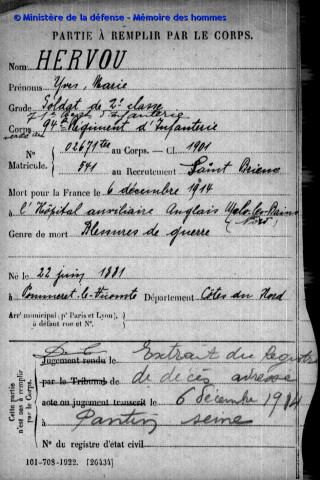 © Ministère de la défense - Mémoire des hommes
PARTIE À REMPLIR PAR LE CORPS.
Nom HERVOU
Prénoms Yves, Marie
Grade Soldat de 2e classe
71e Régt d'Infanterie
Corps 94e Régiment d'Infanterie
N° 02671ter au Corps. — Cl. 1901
Matricule. 541 au Recrutement Saint Brieuc
Mort pour la France le 6 décembre 1914
à l'Hôpital auxiliaire Anglais
Genre de mort Blessures de guerre
Né le 22 juin 1881
à Pommeret-le-Vicomte Département Côtes du Nord
Arr' municipal (p' Paris et Lyon), à défaut rue et N°.
Cette partie n'est pas à remplir par le Corps.
Jugement rendu le Extrait du registre
par le Tribunal de de décès adressé
acte ou jugement transcrit le 6 décembre 1914
à Pantin Seine
N° du registre d'état civil
101-708-1922. [26434]